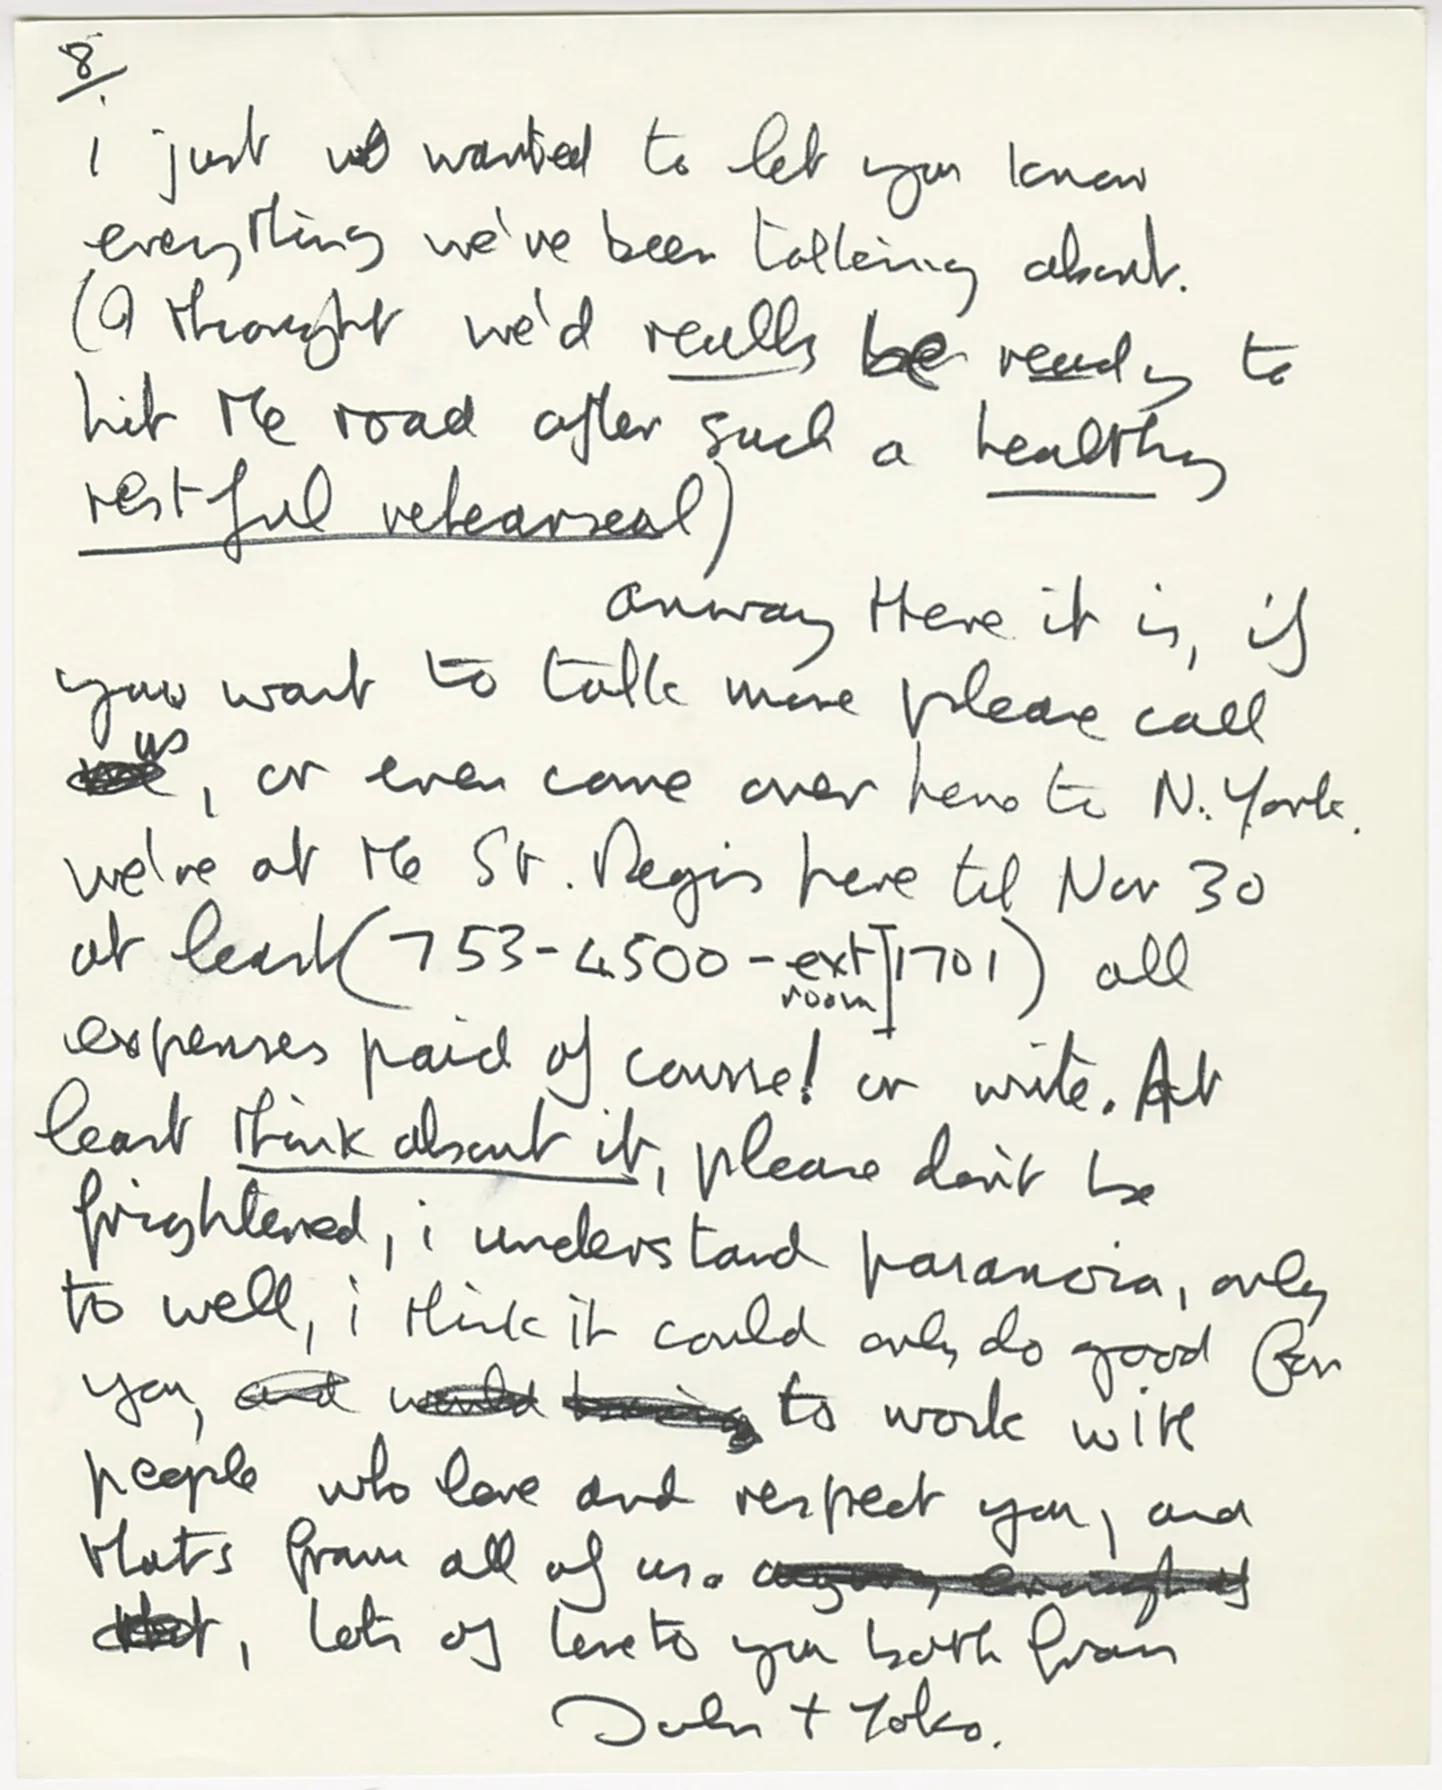 8/
i just wanted to let you know
everything we've been talking about.
(I thought we'd really be ready to
hit the road after such a healthy
restful rehearseal)
anway there it is, if
you want to talk more please call
us, or even come over here to N. York.
we're at the St. Regis here til Nov 30
at least (753-4500-ext 1701) all
room
expenses paid of course! or write. At
least think about it, please don't be
frightened, i understand paranoia, only
to well, i think it could only do good for
you, and would to work with
people who love and respect you, and
that's from all of us.
, lots of love to you both from
John + Yoko.